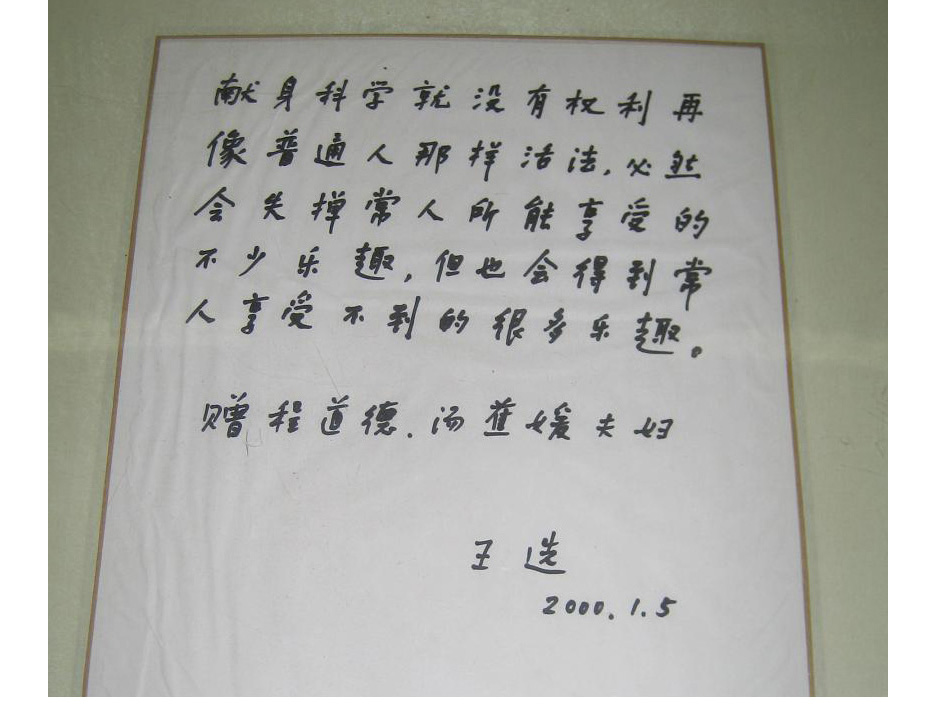 献身科学就没有权利再
像普通人那样活法,必然
会失掉常人所能享受的
不少乐趣,但也会得到常
人享受不到的很多乐趣。
赠程道德.汤蕉媛夫妇
王选
2000.1.5